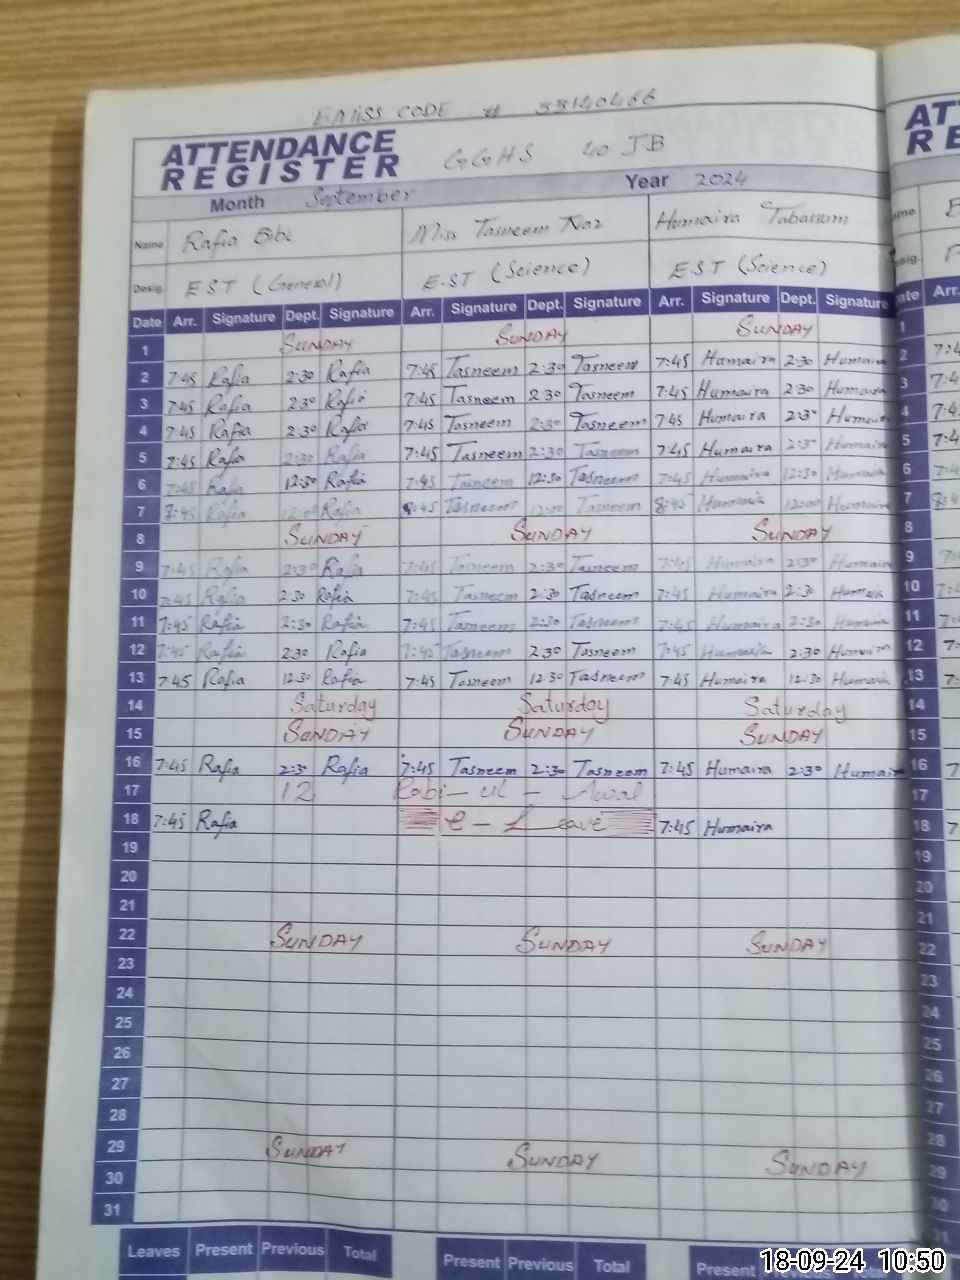 EMISS CODE # 33140466
ATTENDANCE REGISTER GGHS 40 JB
Month September Year 2024
Name Rafia Bibi Miss Tasneem Naz Humaira Tabassum
Desig. EST (General) EST (Science) EST (Science)
Date Arr. Signature Dept. Signature Arr. Signature Dept. Signature Arr. Signature Dept. Signature
1 SUNDAY SUNDAY SUNDAY
2 7:45 Rafia 2:30 Rafia 7:45 Tasneem 2:30 Tasneem 7:45 Humaira 2:30 Humaira
3 7:45 Rafia 2:30 Rafia 7:45 Tasneem 2:30 Tasneem 7:45 Humaira 2:30 Humaira
4 7:45 Rafia 2:30 Rafia 7:45 Tasneem 2:30 Tasneem 7:45 Humaira 2:30 Humaira
5 7:45 Rafia 2:30 Rafia 7:45 Tasneem 2:30 Tasneem 7:45 Humaira 2:30 Humaira
6 7:45 Rafia 12:30 Rafia 7:45 Tasneem 12:30 Tasneem 7:45 Humaira 12:30 Humaira
7 8:45 Rafia 12:00 Rafia 8:45 Tasneem 12:00 Tasneem 8:45 Humaira 12:00 Humaira
8 SUNDAY SUNDAY SUNDAY
9 7:45 Rafia 2:30 Rafia 7:45 Tasneem 2:30 Tasneem 7:45 Humaira 2:30 Humaira
10 7:45 Rafia 2:30 Rafia 7:45 Tasneem 2:30 Tasneem 7:45 Humaira 2:30 Humaira
11 7:45 Rafia 2:30 Rafia 7:45 Tasneem 2:30 Tasneem 7:45 Humaira 2:30 Humaira
12 7:45 Rafia 2:30 Rafia 7:45 Tasneem 2:30 Tasneem 7:45 Humaira 2:30 Humaira
13 7:45 Rafia 12:30 Rafia 7:45 Tasneem 12:30 Tasneem 7:45 Humaira 12:30 Humaira
14 Saturday Saturday Saturday
15 SUNDAY SUNDAY SUNDAY
16 7:45 Rafia 2:30 Rafia 7:45 Tasneem 2:30 Tasneem 7:45 Humaira 2:30 Humaira
17 12 Rabi-ul-Awal
18 7:45 Rafia C-Leave 7:45 Humaira
19
20
21
22 SUNDAY SUNDAY SUNDAY
23
24
25
26
27
28
29 SUNDAY SUNDAY SUNDAY
30
31
Leaves Present Previous Total Present Previous Total Present
18-09-24 10:50